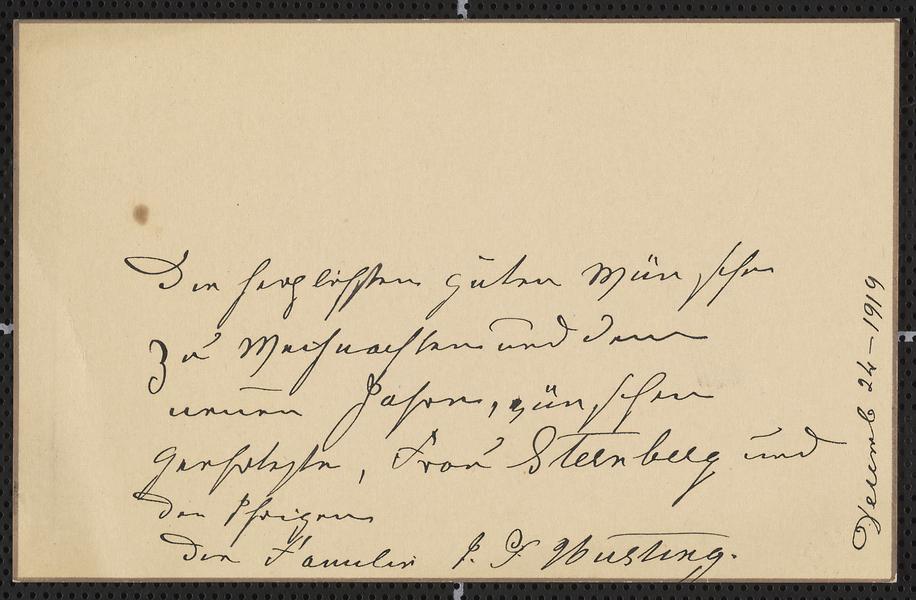 Die herzlichsten guten Wünsche
Zu Weihnachten und dem
neuen Jahre, wünschen
Frau Sternberg und
den Ihrigen
Die Familie J. F. Wusting.
Decemb 24–1919